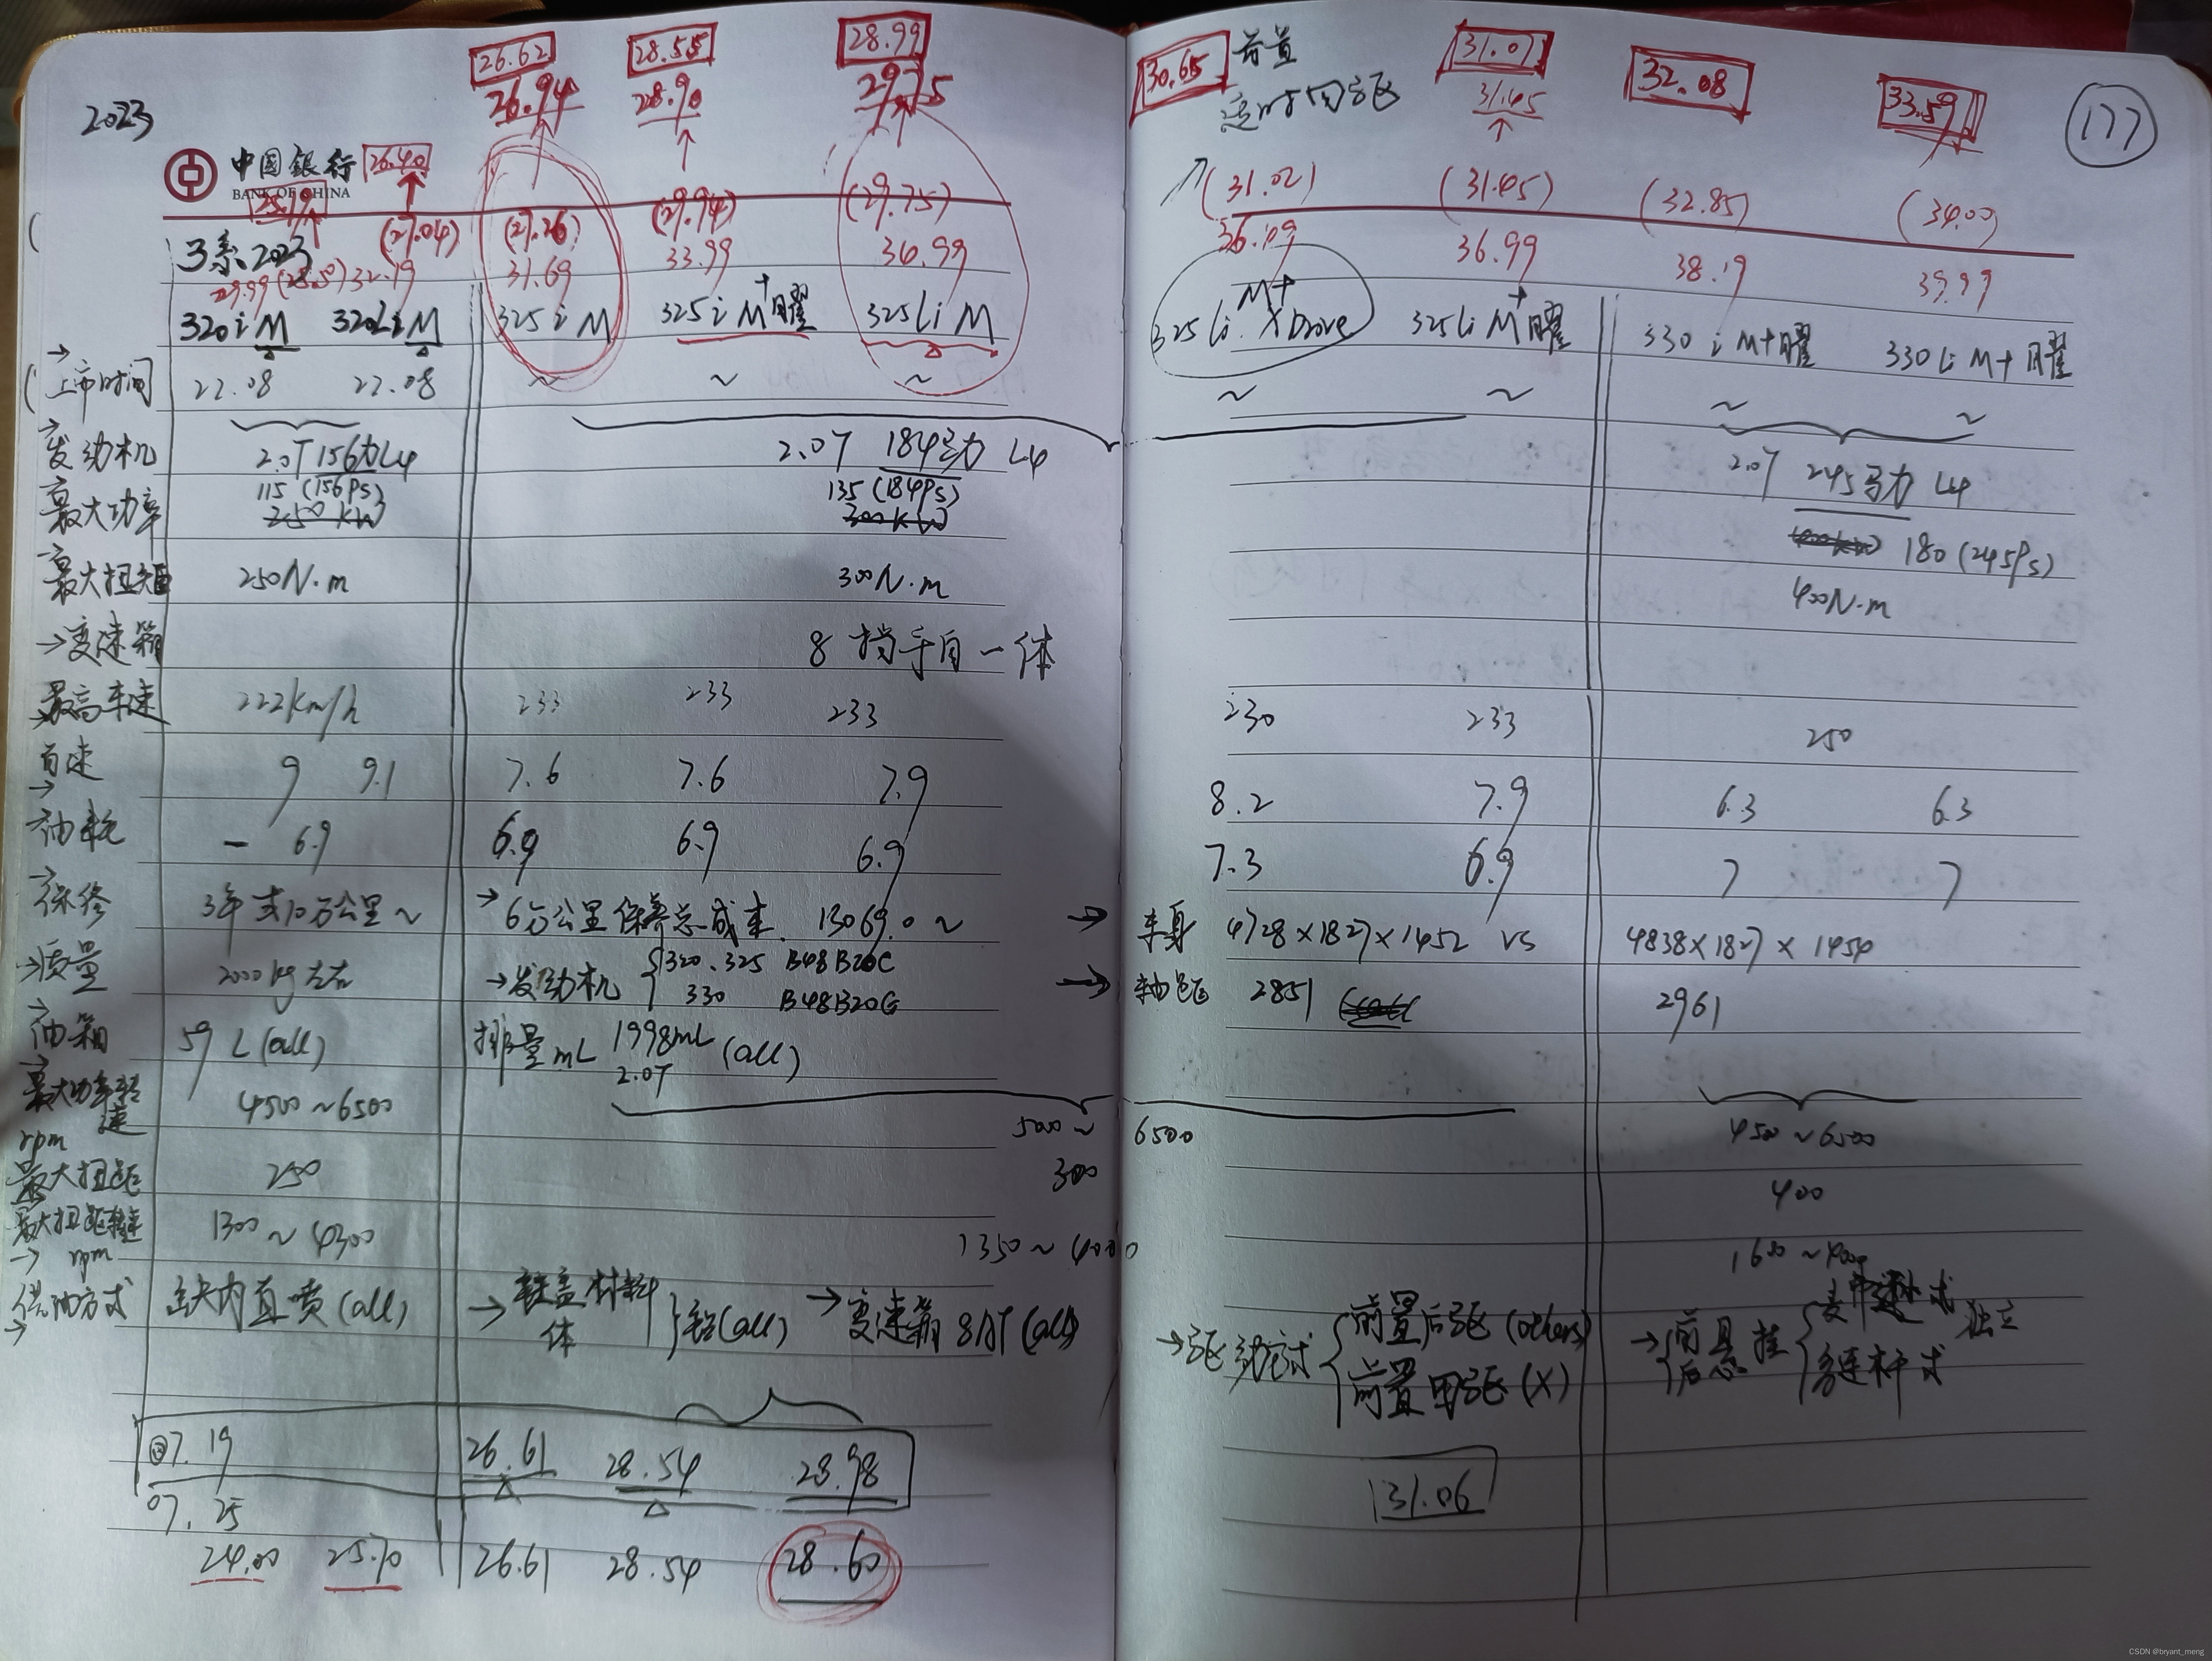 26.62 28.55 28.99
26.94 28.90 29.75
2023
中国銀行 26.40
BANK OF CHINA
25.19
(27.04) (27.26) (29.94) (29.75)
3系 2023 31.69 33.99 36.99
29.99 (28.5) 32.19
320i M 320Li M 325i M 325i M+曜 325Li M
上市时间 22.08 22.08 ~ ~ ~
发动机 2.0T 156力 L4 2.0T 184马力 L4
最大功率 115 (156Ps) 135 (184Ps)
250 kW 300 kW
最大扭矩 250N·m 300N·m
变速箱 8 挡手自一体
最高车速 222km/h 233 233 233
百速 9 9.1 7.6 7.6 7.9
油耗 - 6.9 6.9 6.9 6.9
保修 3年或10万公里 ~ 6万公里保养总成本 13069.0 ~
质量 2000kg左右 发动机 320.325 B48B20C
330 B48B20G
油箱 59 L (all) 排量 mL 1998mL (all)
2.0T
最大功率转速 4500~6500 5000~
rpm
最大扭距 250 300
最大扭距转速 1300~4300 1350~4000
rpm
供油方式 缸内直喷(all) 缸盖材料 铝(all) 变速箱 8AT (all)
体
07.19 26.61 28.54 28.98
07.25
24.00 25.70 26.61 28.54 28.60
30.65 前置 31.07 32.08 33.59
适时四驱 31.45
177
(31.02) (31.45) (32.85) (34.00)
36.09 36.99 38.19 39.99
M+
325Li XDrove 325Li M+曜 330i M+曜 330Li M+曜
~ ~ ~ ~
2.0T 245马力 L4
180 (245Ps)
400N·m
230 233 250
8.2 7.9 6.3 6.3
7.3 6.9 7 7
车身 4728×1827×1452 vs 4838×1827×1454
轴距 2851 2961
6500 4500~6500
400
1600~4000
驱动方式 前置后驱 (others) 前悬挂 麦弗逊式 独立
前置四驱 (X) 后 多连杆式
31.06
CSDN @bryant_meng